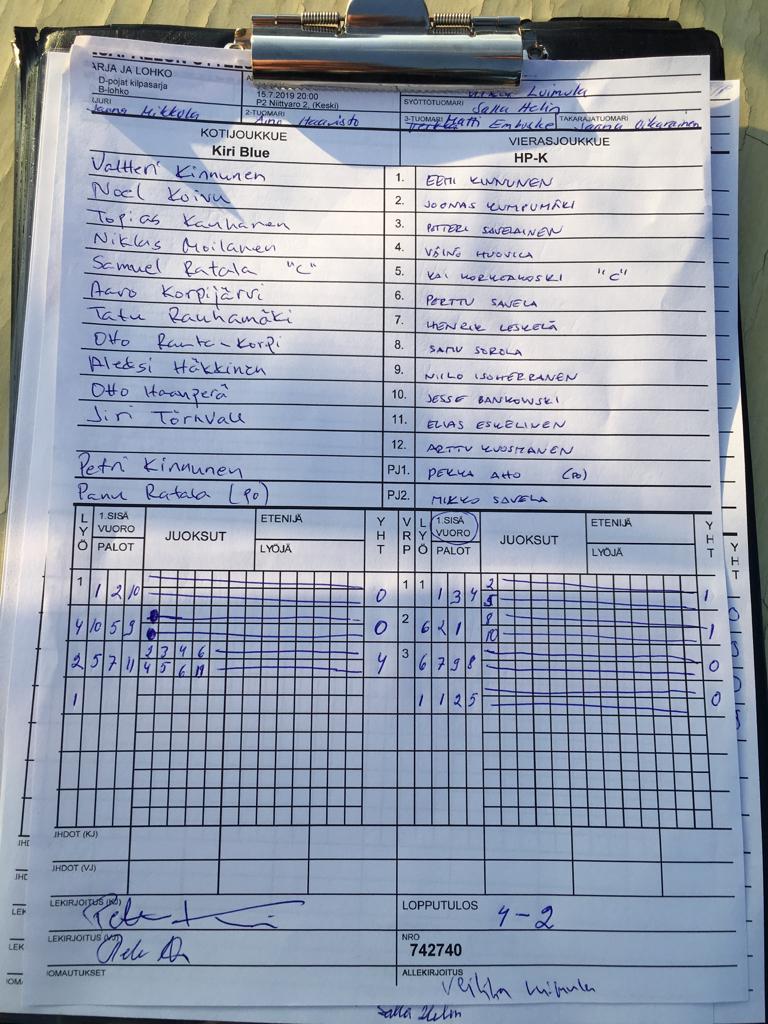 ARJA JA LOHKO
D-pojat kilpasarja
B-lohko
15.7.2019 20:00
P2 Niittyaro 2, (Keski)
Luimula
SYÖTTÖTUOMARI
Salla Helin
Mikkola
2-TUOMARI
Haavisto
3-TUOMARI
TAKARAJATUOMARI
KOTIJOUKKUE
Kiri Blue
VIERASJOUKKUE
HP-K
Valtteri Kinnunen 1. EETI KINNUNEN
Noel Koivu 2. JOONAS KUMPUMÄKI
Topias Kauhanen 3. PETTERI SAVELAINEN
Niklas Moilanen 4. VÄINÖ HUOVILA
Samuel Ratala "C" 5. KAI KORKEAKOSKI "C"
Aaro Korpijärvi 6. PERTTU SAVELA
Tatu Rauhamäki 7. HENRIK LESKELÄ
Otto Rauta-Korpi 8. SAMU SOROLA
Aleksi Häkkinen 9. NIILO ISOHERRANEN
Otto Haanperä 10. JESSE BANKOWSKI
Jiri Törnvall 11. ELIAS ESKELINEN
12. ARTTU KUOSMANEN
Petri Kinnunen PJ1. PEKKA AHO (PO)
Panu Ratala (po) PJ2. MIKKO SAVELA
LYÖ 1.SISÄ VUORO PALOT JUOKSUT ETENIJÄ LYÖJÄ YHT VRP LYÖ 1.SISÄ VUORO PALOT JUOKSUT ETENIJÄ LYÖJÄ YHT
1 1 2 10 0 1 1 1 3 4 2 5 1
4 10 5 9 0 2 6 2 1 8 10 1
2 5 7 11 2 3 4 6 4 3 6 7 9 8 0
4 5 6 11
1 1 1 2 5 0
JHDOT (KJ)
JHDOT (VJ)
LEKIRJOITUS (KJ)
LOPPUTULOS 4-2
LEKIRJOITUS (VJ)
NRO
742740
OMAUTUKSET
ALLEKIRJOITUS
Veikka Luimula
Salla Helin